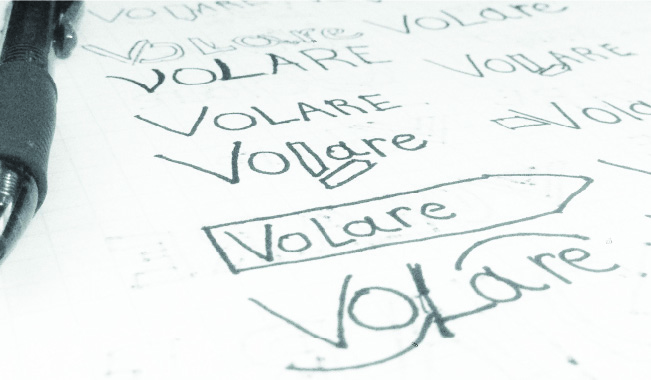 VOLARE
VoLare
VoLare
VOLARE
VOLARE
VOLARE
Vola
VoLare
VoLare
VOLare